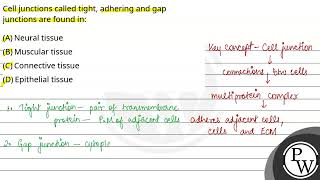 Cell junctions called tight, adhering and gap
junctions are found in:
(A) Neural tissue
(B) Muscular tissue
(C) Connective tissue
(D) Epithelial tissue
Key concept - Cell junction
connections b/w cells
multiprotein complex
adheres adjacent cells,
cells and ECM
1. Tight junction - pair of transmembrane
protein - PM of adjacent cells
2. Gap junction - cytople
PW